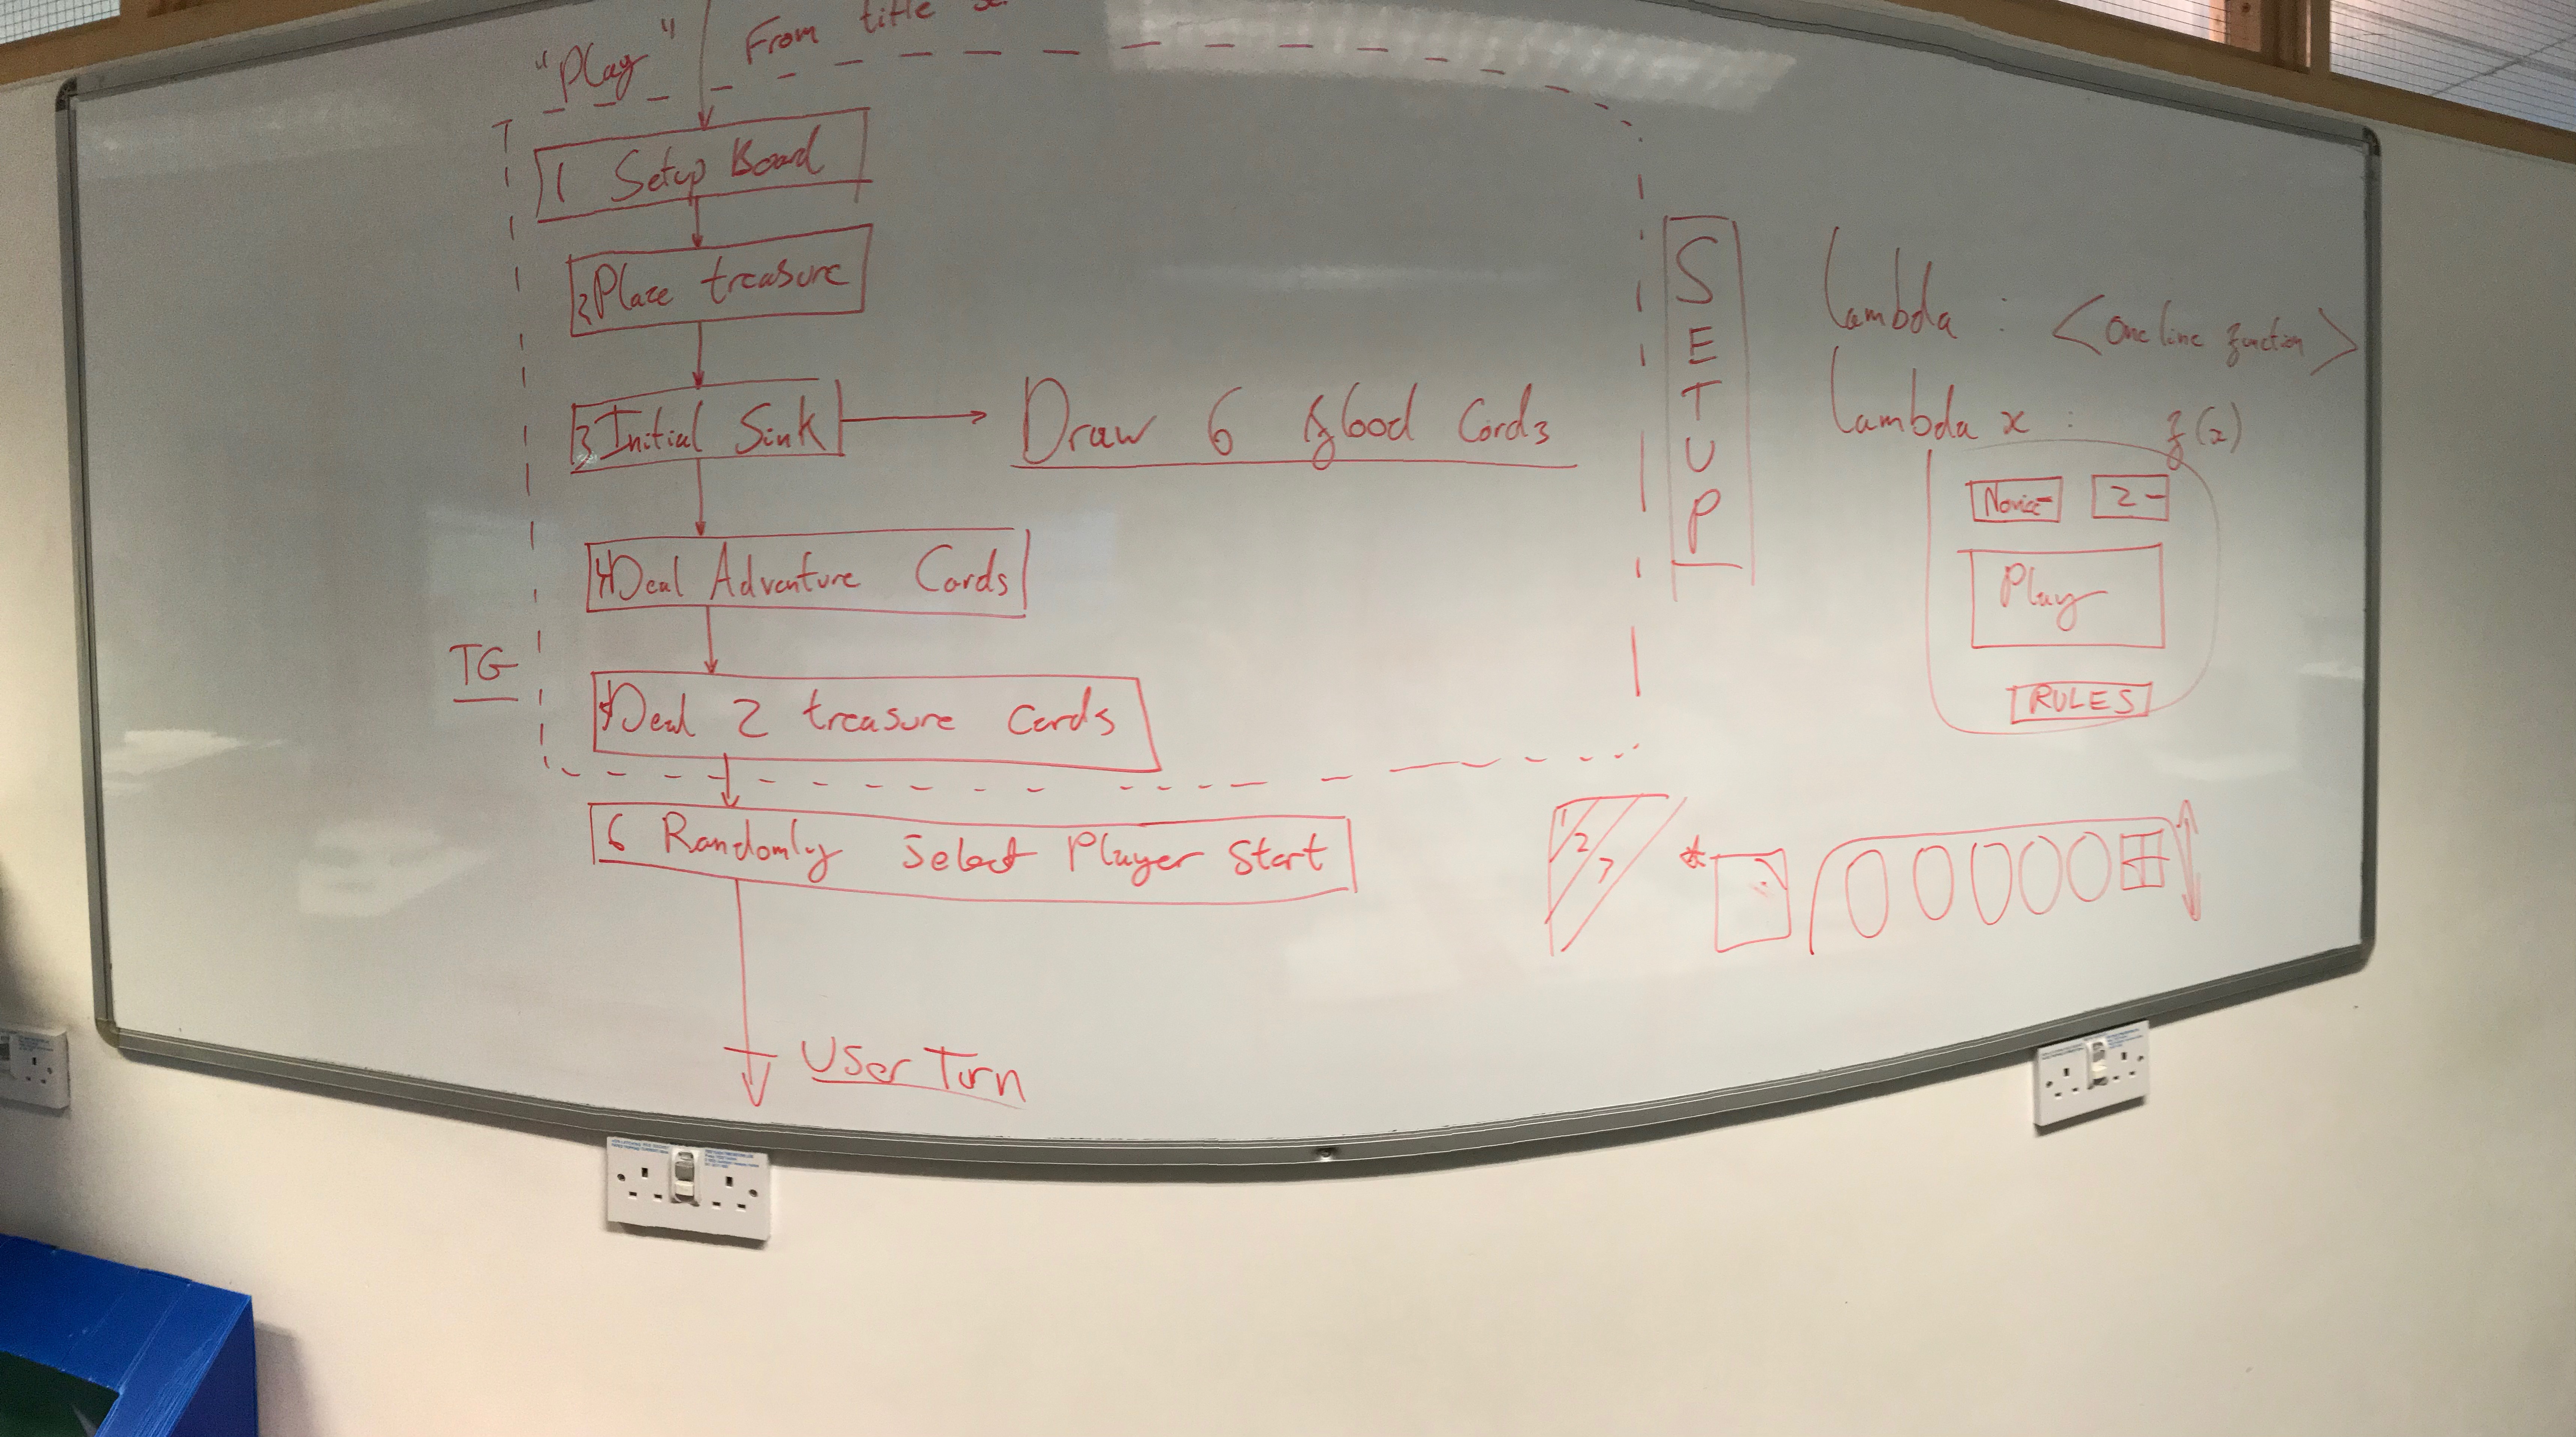 "Play" From title
1 Setup Board
2 Place treasure
3 Initial Sink
Draw 6 flood Cards
4 Deal Adventure Cards
TG
5 Deal 2 treasure Cards
6 Randomly Select Player Start
User Turn
SETUP
lambda : <One line function>
lambda x : f(x)
Novice 2
Play
RULES
1
2
3
*